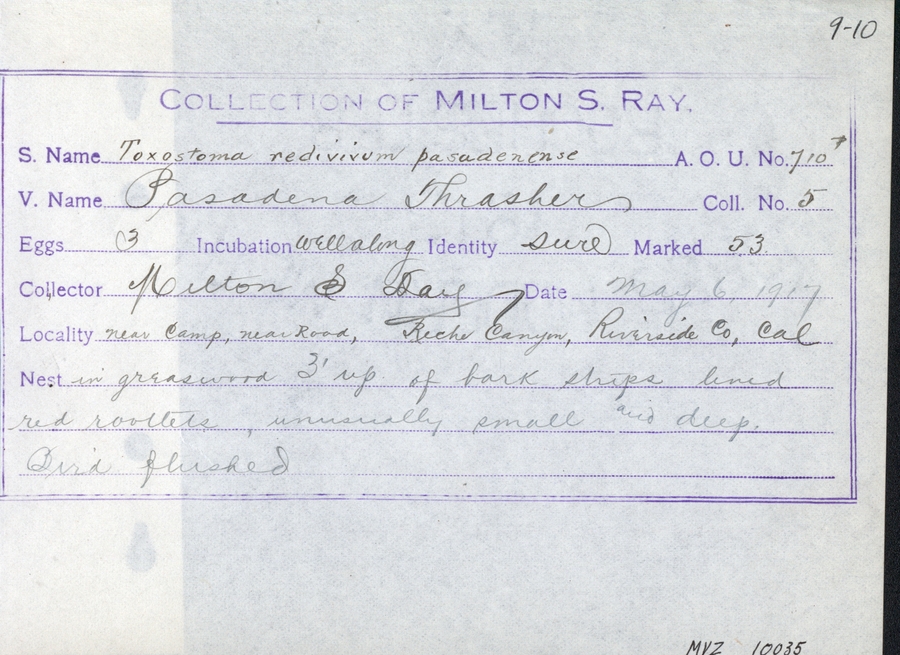 9-10
COLLECTION OF MILTON S. RAY.
S. Name Toxostoma redivivum pasadenense A. O. U. No. 710
V. Name Pasadena Thrasher Coll. No. 5
Eggs 3 Incubation well along Identity sure Marked 53
Collector Milton S Ray Date May 6, 1917
Locality near Camp, near Road, Reche Canyon, Riverside Co, Cal
Nest in greaswood 3' up of bark strips lined
red rootlets, unusually small and deep.
Bird flushed
MVZ 10035